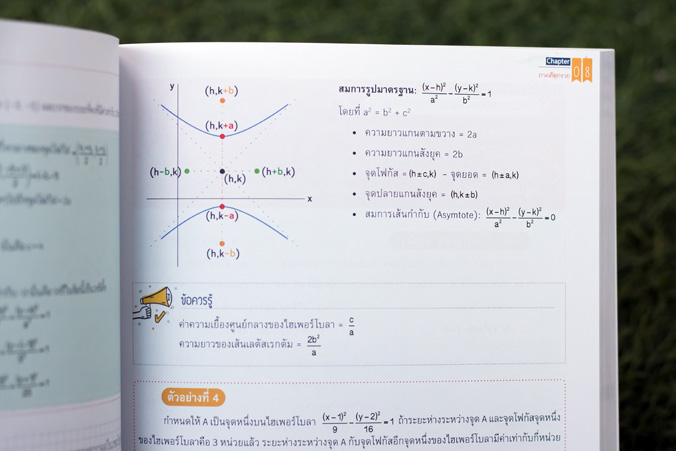 Chapter
ภาคตัดกรวย 08
y
(h,k+b)
(h,k+a)
(h-b,k)
(h,k)
(h+b,k)
x
(h,k-a)
(h,k-b)
สมการรูปมาตรฐาน: (x-h)²/a² - (y-k)²/b² = 1
โดยที่ a² = b² + c²
• ความยาวแกนตามขวาง = 2a
• ความยาวแกนสังยุค = 2b
• จุดโฟกัส = (h±c,k) - จุดยอด = (h±a,k)
• จุดปลายแกนสังยุค = (h,k±b)
• สมการเส้นกำกับ (Asymtote): (x-h)²/a² - (y-k)²/b² = 0
ข้อควรรู้
ค่าความเยื้องศูนย์กลางของไฮเพอร์โบลา = c/a
ความยาวของเส้นเลตัสเรกตัม = 2b²/a
ตัวอย่างที่ 4
กำหนดให้ A เป็นจุดหนึ่งบนไฮเพอร์โบลา (x-1)²/9 - (y-2)²/16 = 1 ถ้าระยะห่างระหว่างจุด A และจุดโฟกัสจุดหนึ่ง
ของไฮเพอร์โบลาคือ 3 หน่วยแล้ว ระยะห่างระหว่างจุด A กับจุดโฟกัสอีกจุดหนึ่งของไฮเพอร์โบลามีค่าเท่ากับกี่หน่วย